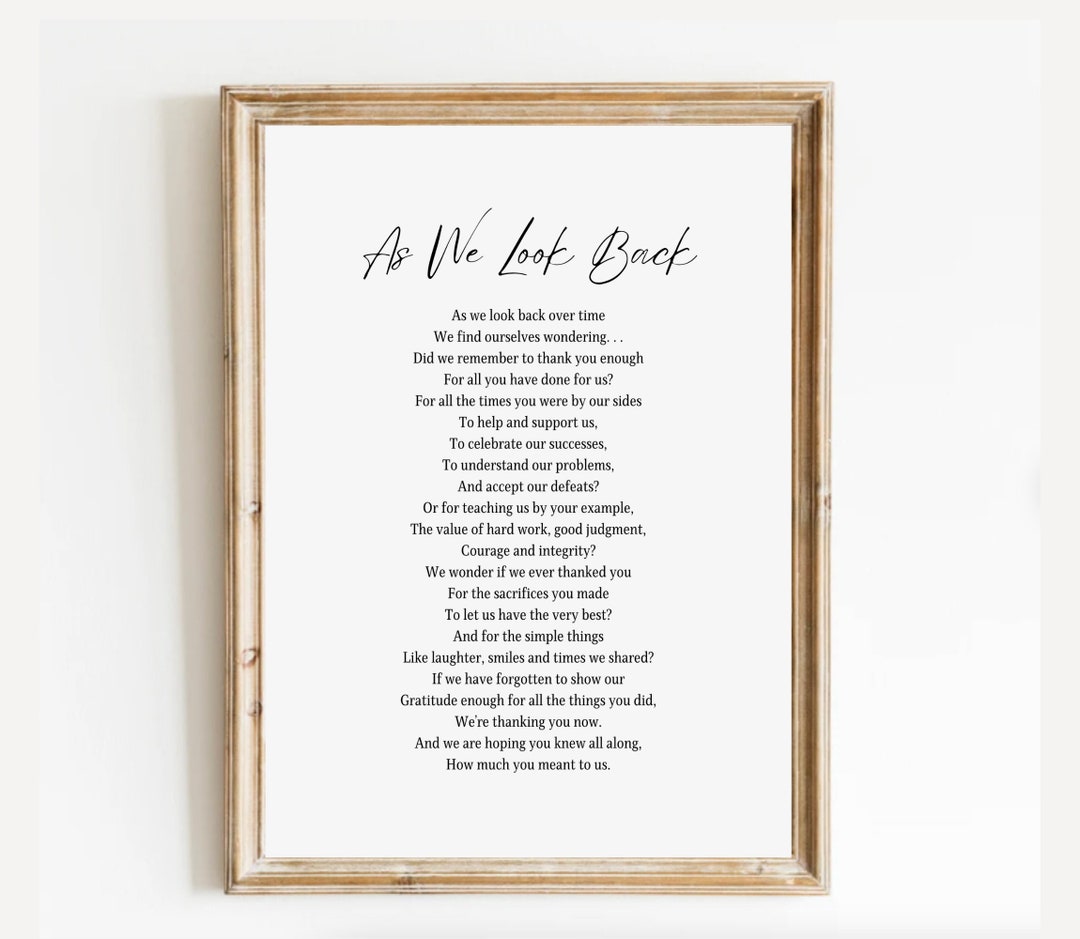 As We Look Back
As we look back over time
We find ourselves wondering. . .
Did we remember to thank you enough
For all you have done for us?
For all the times you were by our sides
To help and support us,
To celebrate our successes,
To understand our problems,
And accept our defeats?
Or for teaching us by your example,
The value of hard work, good judgment,
Courage and integrity?
We wonder if we ever thanked you
For the sacrifices you made
To let us have the very best?
And for the simple things
Like laughter, smiles and times we shared?
If we have forgotten to show our
Gratitude enough for all the things you did,
We're thanking you now.
And we are hoping you knew all along,
How much you meant to us.